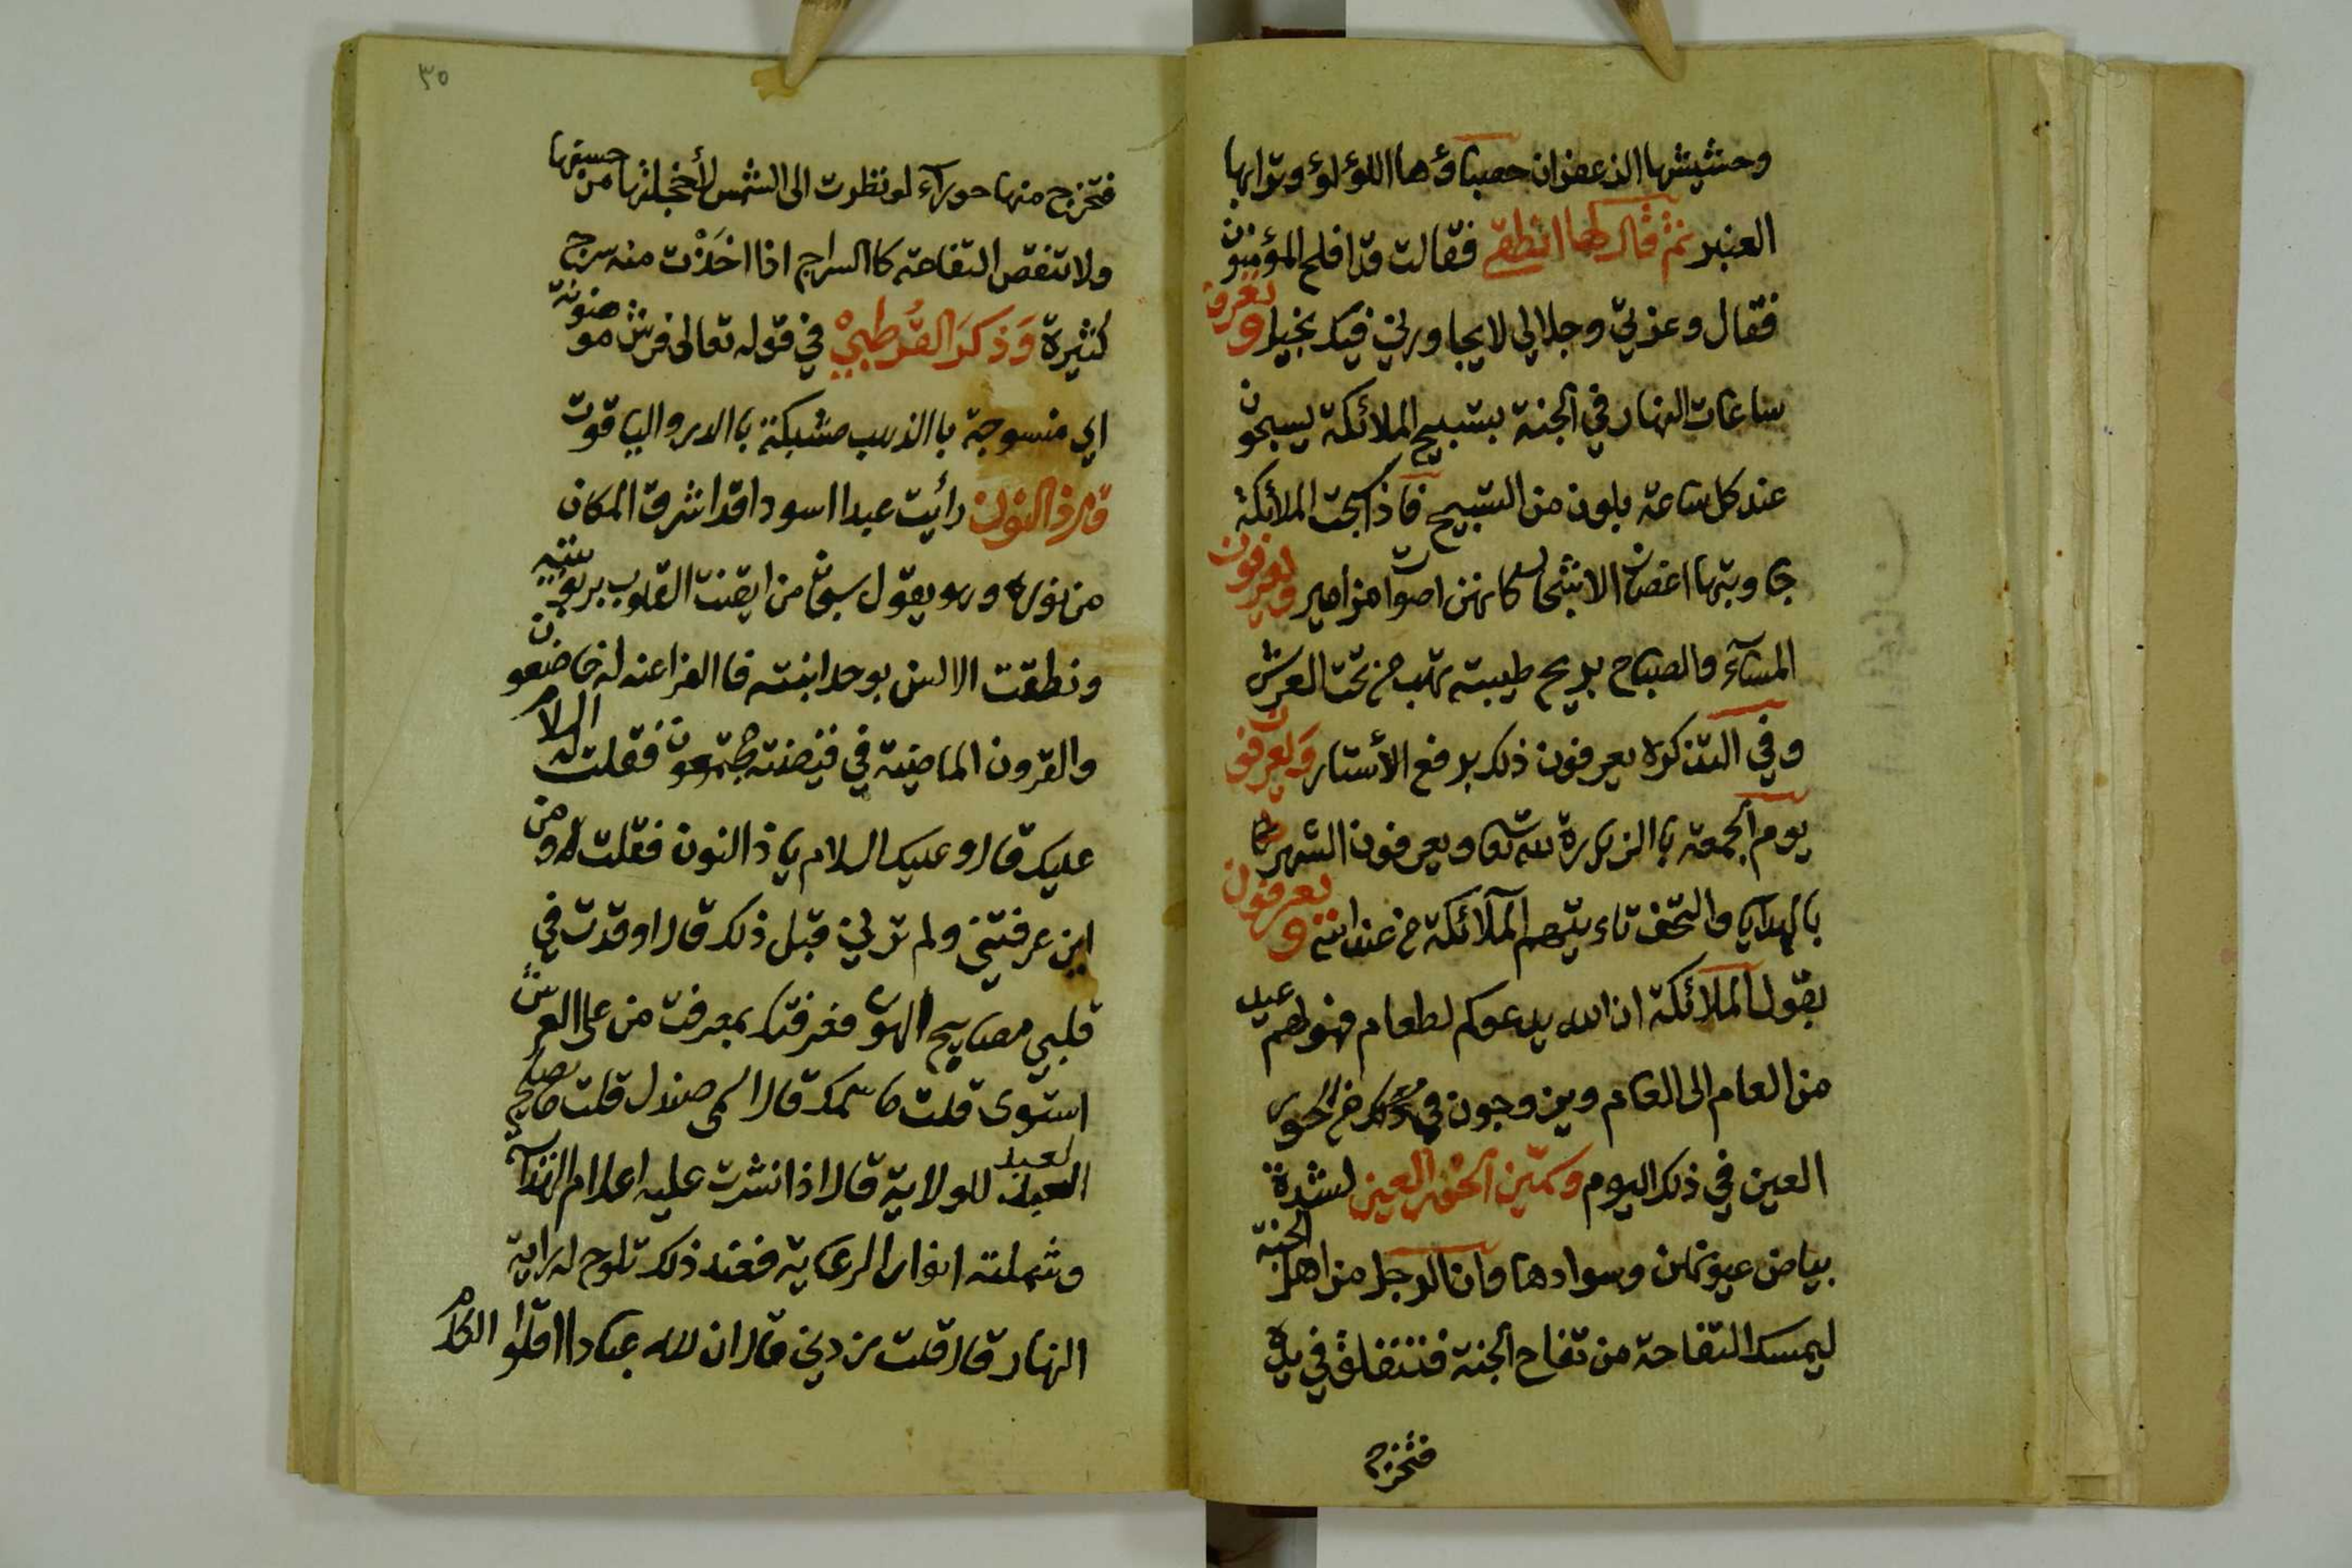 وحشيشها الزعفران حصباؤها اللؤلؤ وترابها
العنبر ثم قال لها انطقي فقالت قد افلح المؤمنون
فقال وعزتي وجلالي لا يجاورني فيك بخيل ويعرفون
ساعات النهار في الجنة بتسبيح الملائكة يسبحون
عند كل ساعة بلون من التسبيح فاذا سبحت الملائكة
جاوبتها اغصان الاشجار كانهن اصوات مزامير ويعرفون
المسآء والصباح بريح طيبته تهب من تحت العرش
وفي التذكرة يعرفون ذلك برفع الأستار ويعرفون
يوم الجمعة باالزيارة لله تعا ويعرفون الشهر كا
بالهدايا والتحف تاءتيهم الملآئكة من عند الله ويعرفون
بقول الملآئكة ان الله يدعوكم لطعام فهو لهم عيد
من العام الى العام ويزوجون في ذلك من الحور
العين في ذلك اليوم وسمّين الحور العين لشدة
بياض عيونهن وسوادها وان الرجل من اهل الجنة
ليمسك التفاحة من تفاح الجنة فتنفلق في يده
فتخرج
٣٥
فتخرج منها حورآء لو نظرت الى الشمس لأخجلتها من حسنها
ولا تنقص التفاحة كاالسراج اذا اخذت منه سرج
كثيرة وَذكرَ القُرطبيْ في قوله تعالى فرش موضونة
اي منسوجة باالذهب مشبكة باالدر والياقوت
قال ذا النون رأيت عبدا اسودا قد اشرق المكان
من نوره وهو يقول سبحان من ايقنت القلوب بربوبيته
ونطقت الالسن بوحدانيته فاالفراعنه له خاضعون
والقرون الماضية في قبضته مجتمعون فقلت السلام
عليك قال وعليك السلام ياذا النون فقلت له ومن
اين عرفتني ولم ترني قبل ذلك قال اوقدت في
قلبي مصابيح الهوى فعرفتك بمعرفت من على العرش
استوى قلت ما اسمك قال اسمى صندل قلت متا يصلح
العبد للولاية قال اذا نشرت عليه اعلام الهدآ
وشملته انوار الرعاية فعند ذلك تلوح له راية
النهار قال قلت زدني قال ان لله عبادا اقلوا الكلام